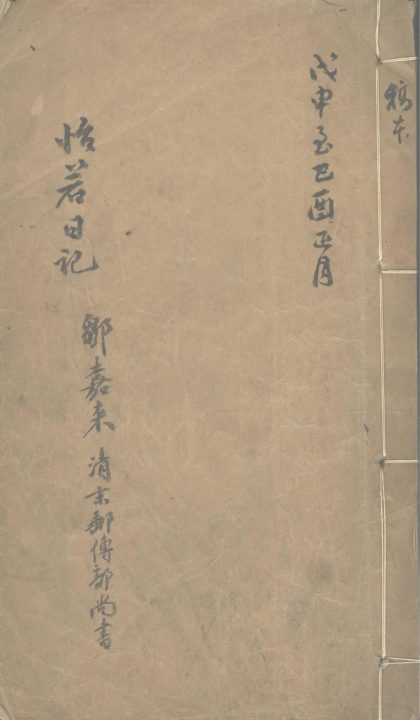 稿本
戊申至己酉正月
怡若日記
鄒嘉来 清末郵傳部尚書